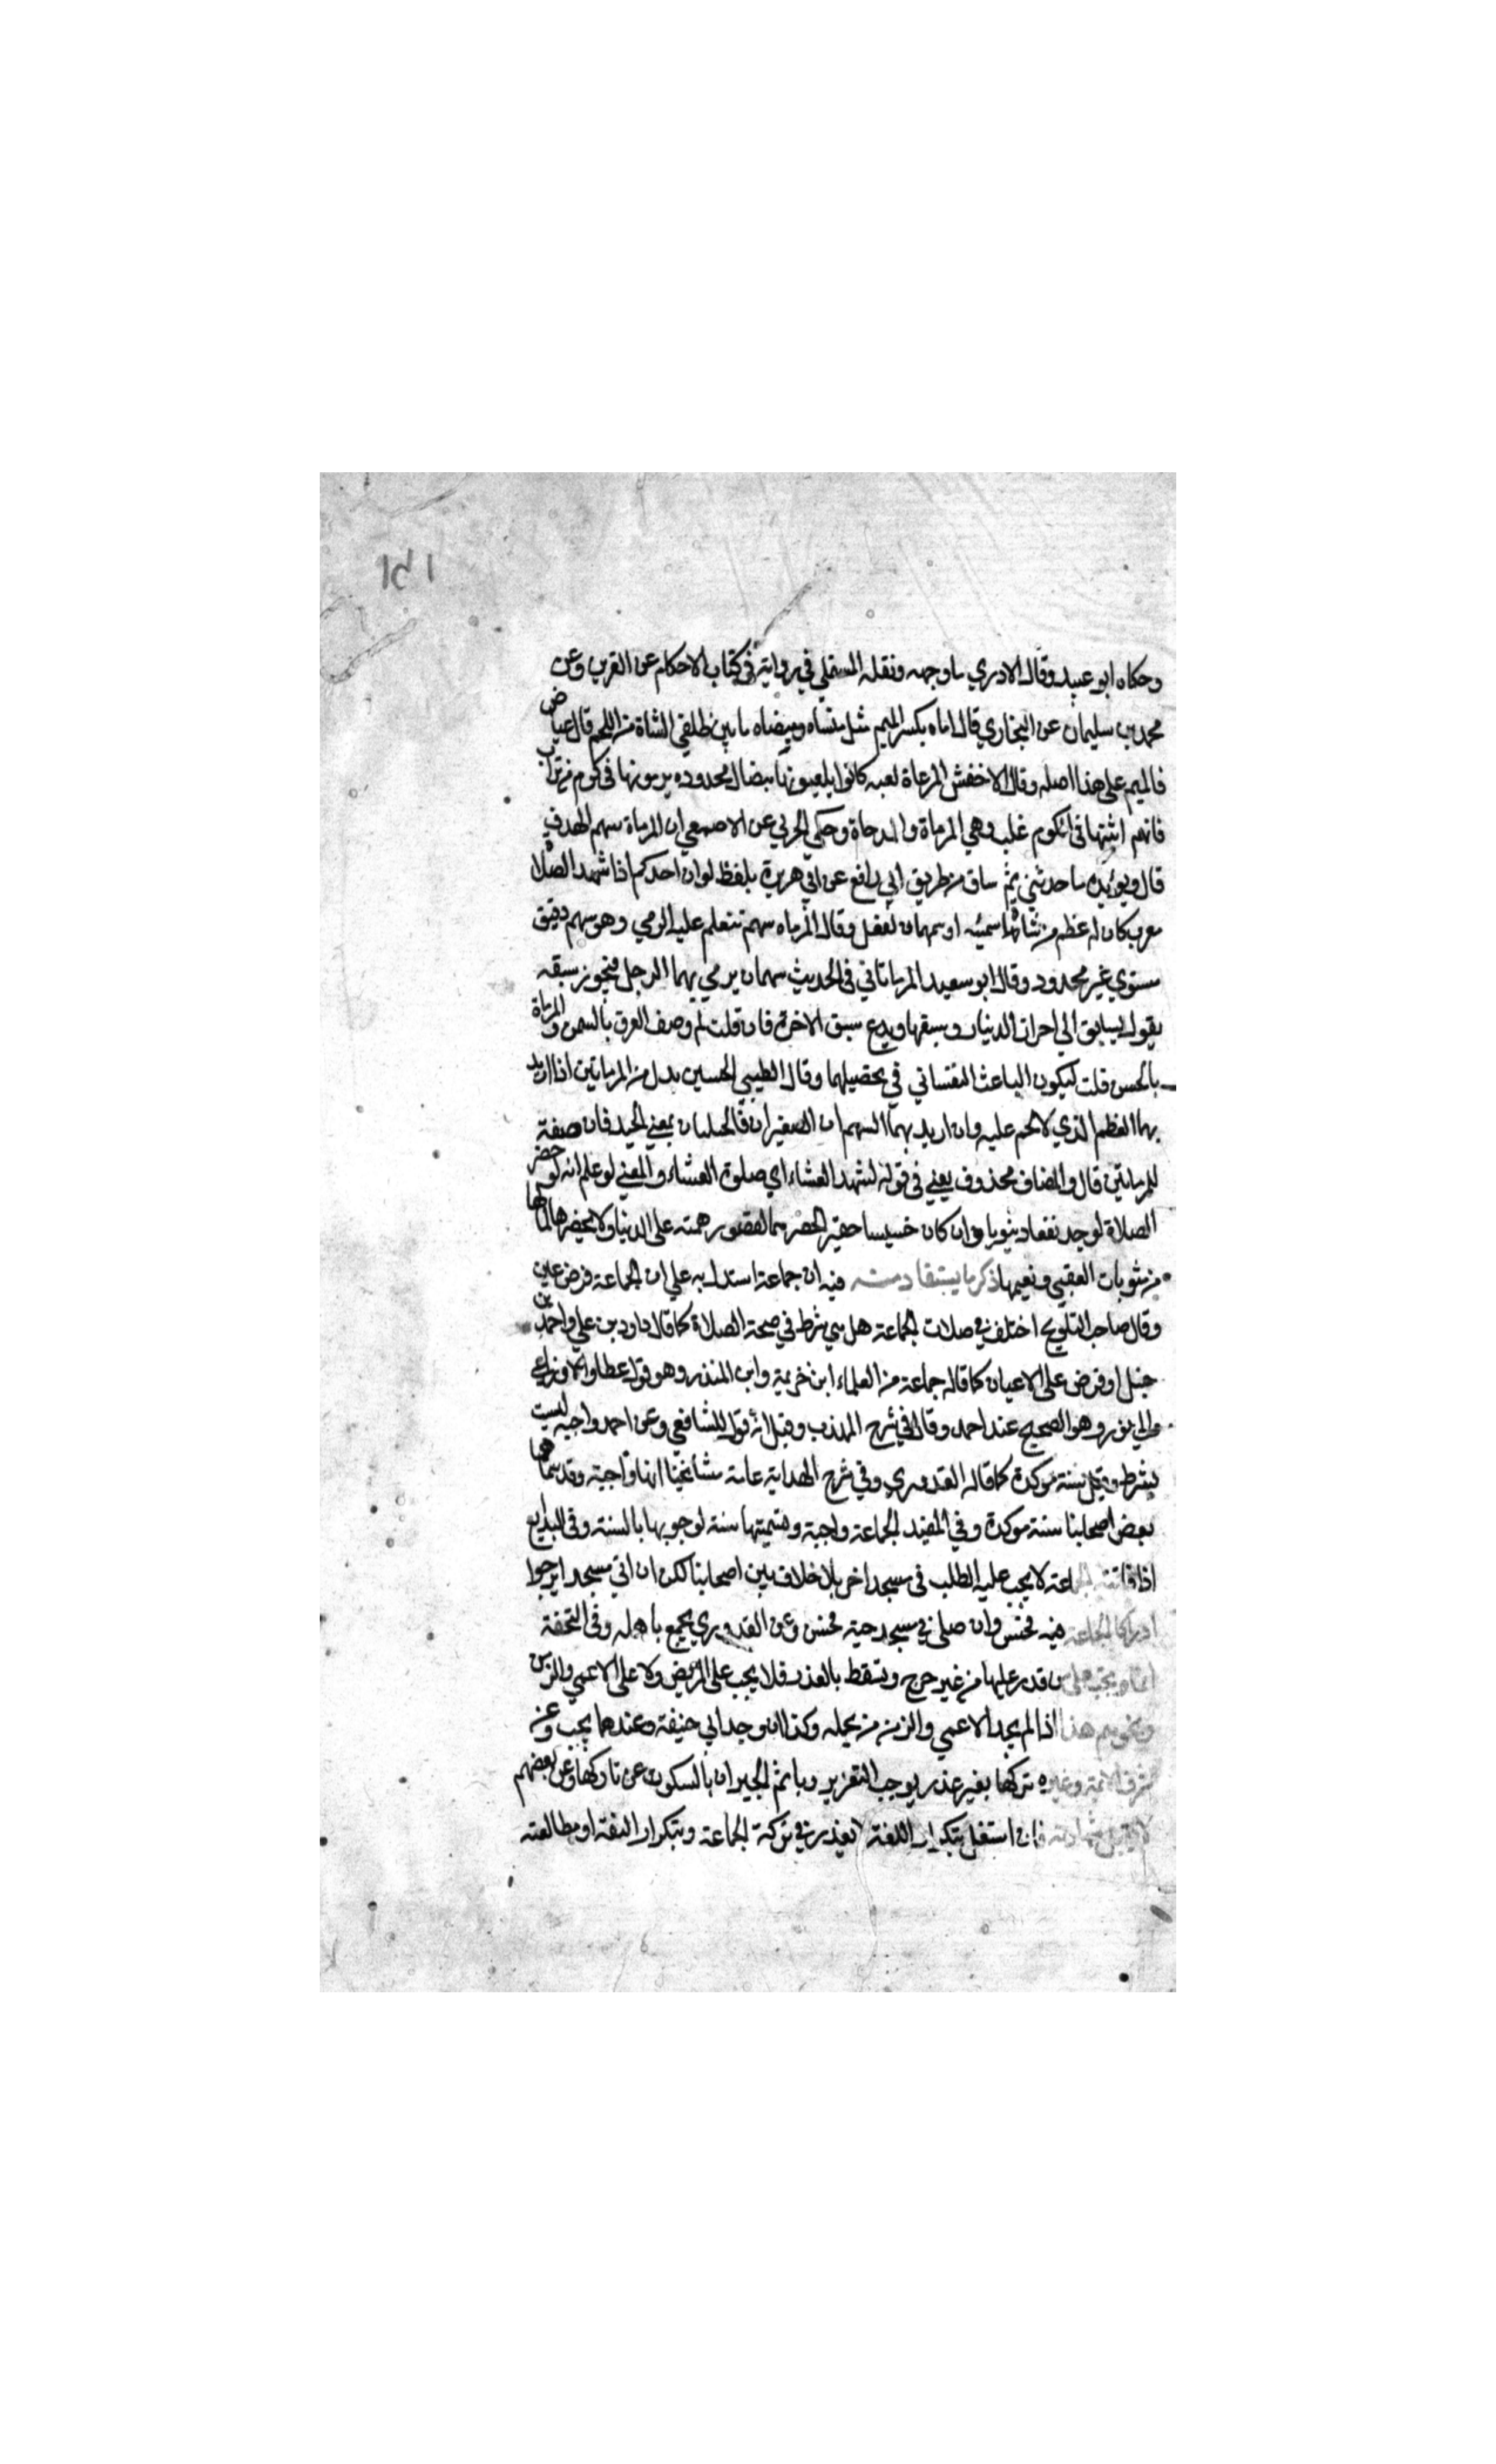 ١٥١
وحكاه ابو عبيد وقال لا ادري ما وجهه ونقله المستملي في روايته في كتاب الاحكام عن الفربري وعن
محمد بن سليمان عن البخاري قال اماه بكسر الميم مثل منساه وميضاه ما بين ظلفي الشاة من اللحم قال عياض
فالميم على هذا اصليه وقال الاخفش المرماة لعبه كانوا يلعبونها بنصال محدوده يرمونها في كوم من تراب
فانهم اثبتها في الكوم غلب وهي المرماة والمدحاة وحكى الحربي عن الاصمعي ان المرماة سهم الهدف
قال ويؤيده ما حدثني ثم ساق من طريق ابي رافع عن ابي هريرة بلفظ لو ان احدكم اذا شهد الصلاة
معي كان له عظم من شاة سمينه او سهمان لفعل وقال المرماه سهم نتعلم عليه الرمي وهو سهم دقيق
مستوي غير محدود وقال ابو سعيد المرماتاني في الحديث سهمان يرمي بهما الرجل فيحوز سبقه
يقول يسابق الى احراز الدنيا وسبقها ويدع سبق الاخرة فان قلت لم وصف العرق بالسمن والمرماة
بالحسن قلت ليكون الباعث النفساني في تحصيلهما وقال الطيبي الحسنين بدل من المرماتين اذا اريد
بهما العظم الذي لا لحم عليه وان اريد بهما السهمان الصغيران فالحسنان بمعنى الجيد فان صفة
للمرماتين قال والمضاف محذوف يعني في قوله لشهد العشاء اي صلوة العشاء والمعنى لو علم انه لو حضر
الصلاة لوجد نفعا دنيويا وان كان خسيسا حقيرا لحضرها لقصور همته على الدنيا ولا يحضرها لما لها
من مثوبات العقبي ونعيمها ذكر ما يستفاد منه فيه ان جماعة استدل به علي ان الجماعة فرض عين
وقال صاحب التلويح اختلف في صلات الجماعة هل هي شرط في صحة الصلاة كما قال داود بن علي واحمد بن
حنبل او فرض على الاعيان كما قاله جماعة من العلماء ابن خزيمة وابن المنذر وهو قول عطا والاوزاعي
وابي ثور وهو الصحيح عند احمد وقال في شرح المهذب وقيل انه قول للشافعي وعن احمد واجبه ليست
بشرط وقيل سنة موكدة كما قاله القدوري وفي شرح الهداية عامة مشائخنا انها واجبة وقد سماها
بعض اصحابنا سنة موكدة وفي المفيد الجماعة واجبة وتسميتها سنة لوجوبها بالسنة وفي البدايع
اذا فاتته الجماعة لا يجب عليه الطلب في مسجد اخر بلا خلاف بين اصحابنا لكن ان اتي مسجدا يرجوا
ادراك الجماعة فيه فحسن وان صلى في مسجد حيه فحسن وعن القدوري يجمع باهله وفي التحفة
انما يجب على من قدر عليها من غير حرج وتسقط بالعذر فلا يجب على المريض ولا على الاعمي والزمن
ونحوهم هذا اذا لم يجد الاعمي والزمن من يحمله وكذا ان وجد ابي حنيفة وعندهما يجب وعن
شرف الائمة وغيره تركها بغير عذر يوجب التعزير ويأثم الجيران بالسكوت عن تاركها وعن بعضهم
لا تقبل شهادته فان استغل بتكرار اللغة لا يعذر في تركه الجماعة وبتكرار الفقه او مطالعته